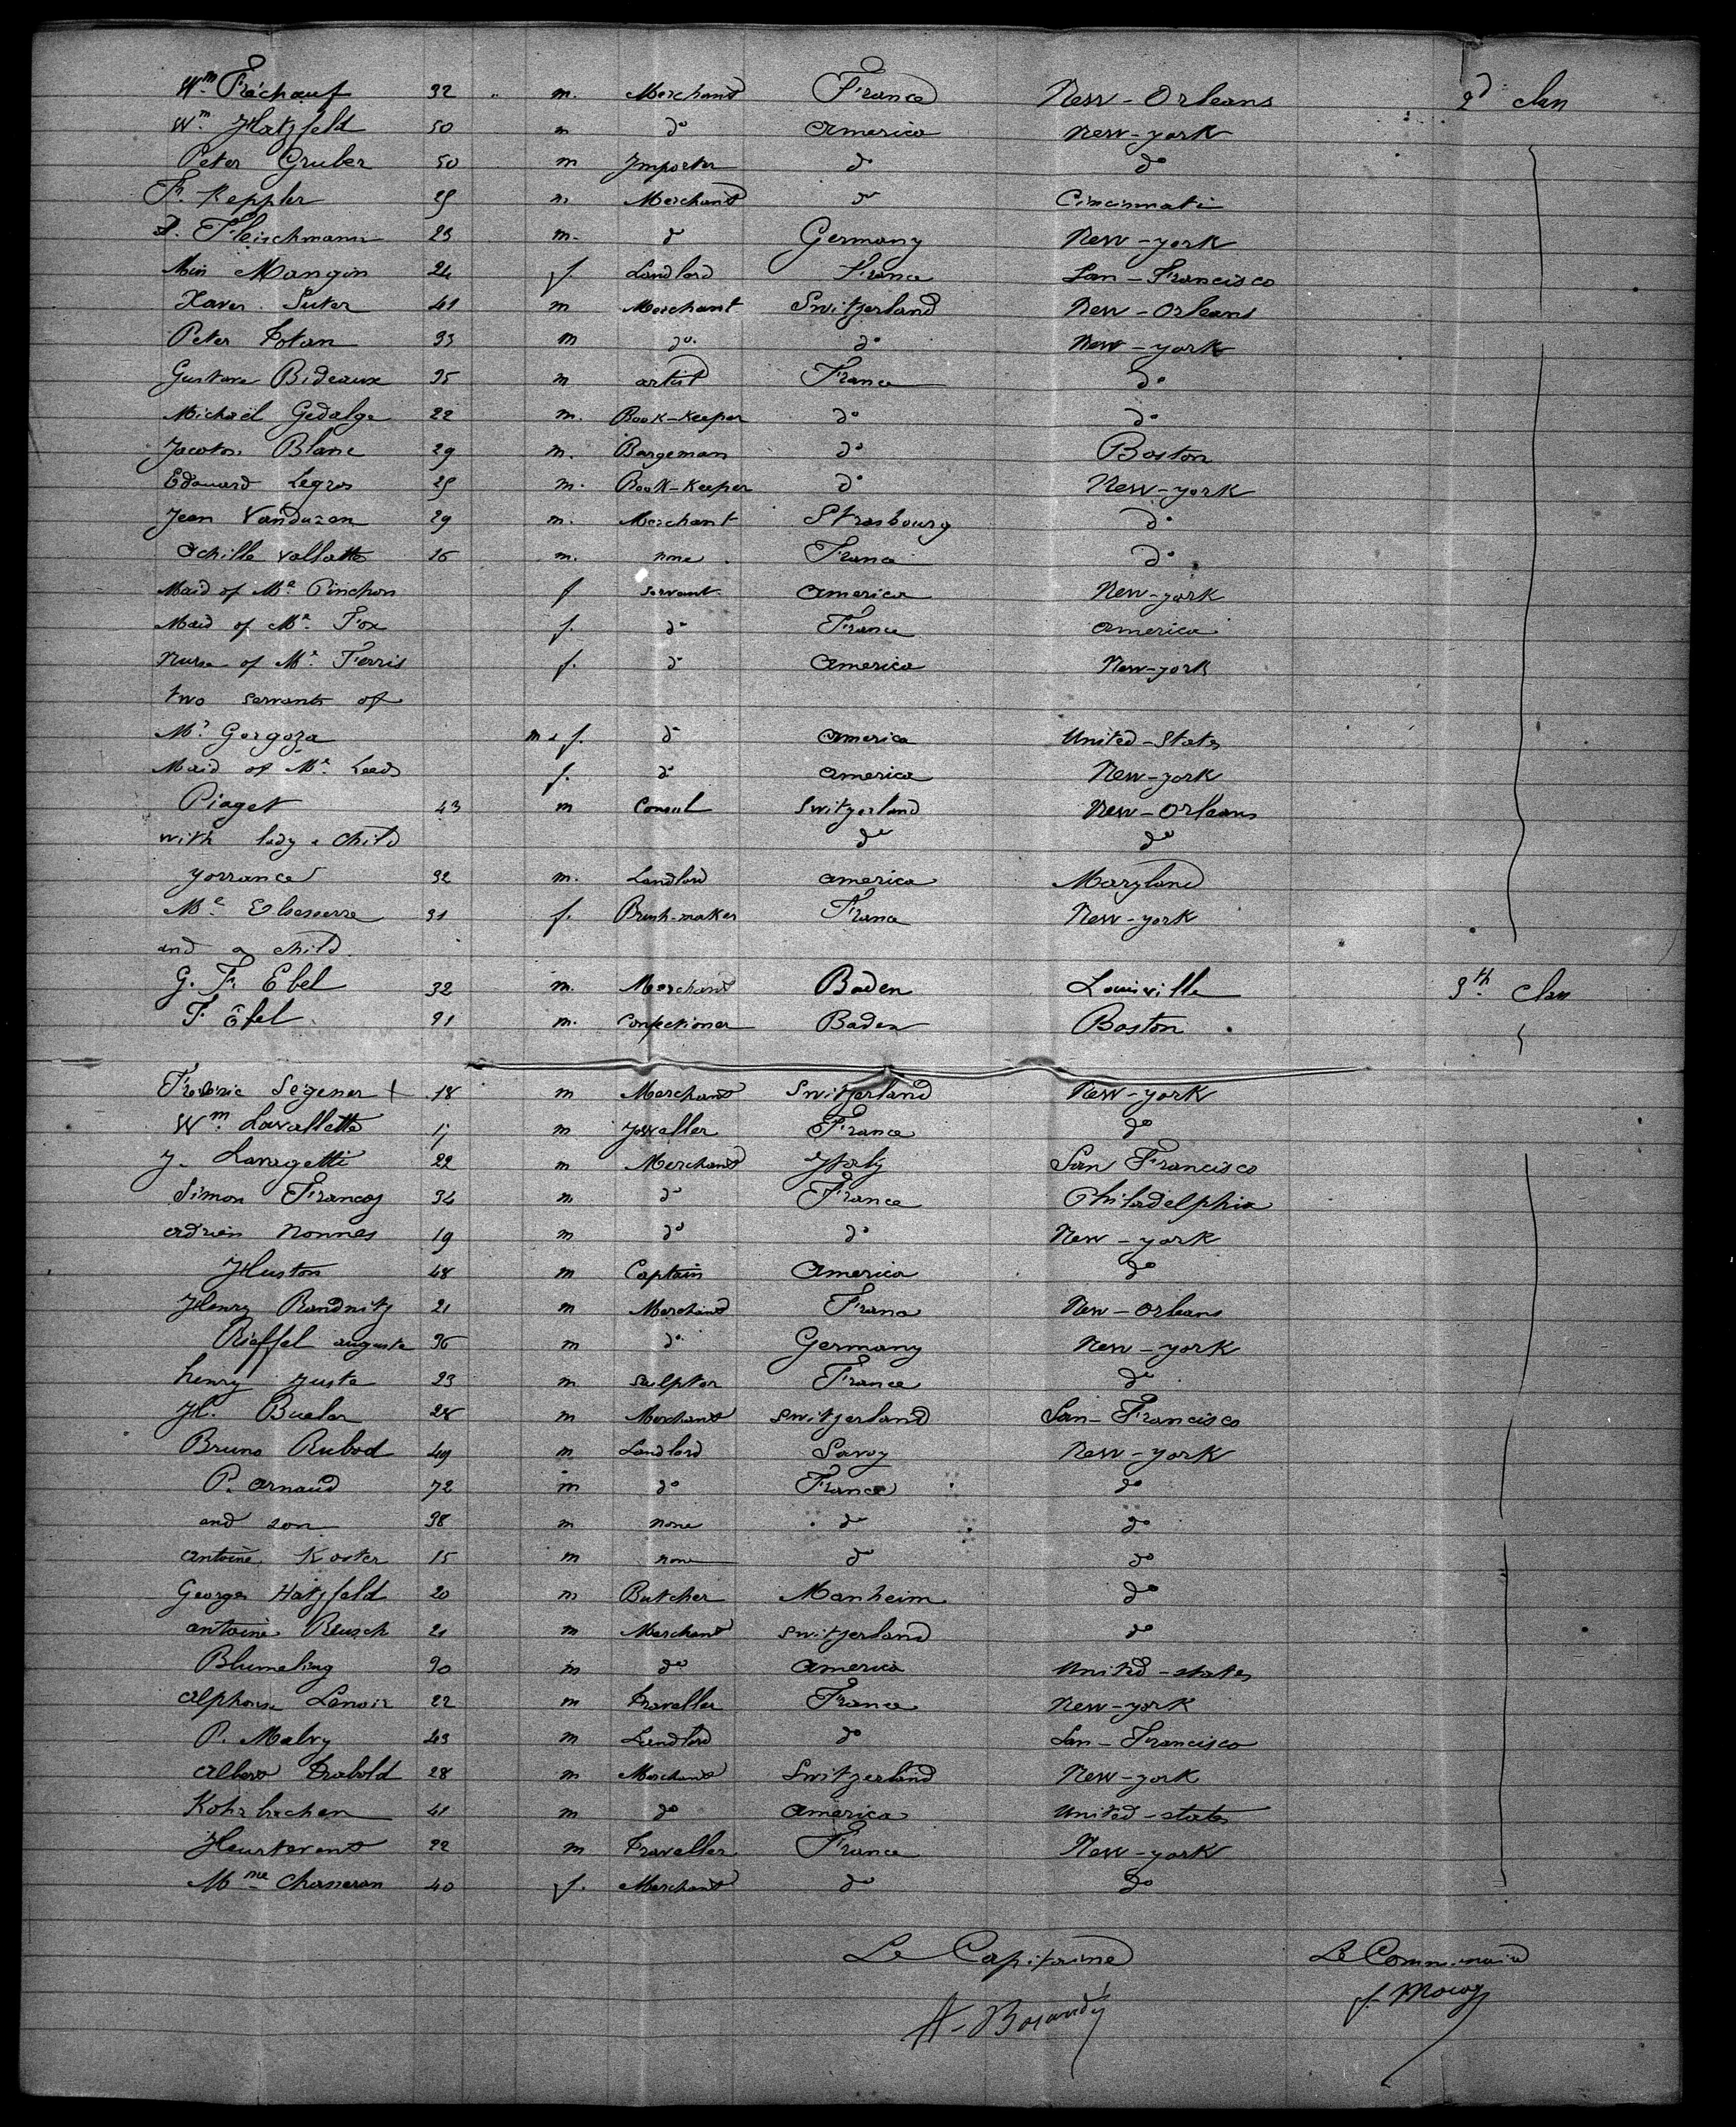 Wm. Fréchauf 32 " m. Merchand France New-Orleans 2d clan
Wm. Hatzfeld 50 m do america new-york
Peter Gruber 50 m Importer do do
F. Keppler 25 m. Merchand do Cincinnati
Fleischmann 23 m. d Germany New-york
Miss Mangin 24 f. Landlord France San-Francisco
Xaver Suter 41 m Merchant Switzerland New-Orleans
Peter Totan 33 m do. do New-york
Gustave Bideaux 35 m artist France do
Michaël Gedalge 22 m. Book-Keeper do do
Blanc 29 m. Bargeman do Boston
Edouard Legros 25 m. Book-Keeper do New-york
Jean Vanduzen 29 m. Merchant Strasbourg do
achille Vallotte 26 m. none France do
Maid of Me. Pinchon f servant america New-york
Maid of Me. Fox f. do France america
nurse of Me. Ferris f. do america New-york
two servants of
Mr. Gorgoza m & f. do america United-States
Maid of Me. Leeds f. do america New-york
Piaget 43 m Consul Switzerland New-Orleans
with lady & child do do
yorrance 32 m. Landlord america Maryland
Me. 31 f. Brush-maker France New-york
and a child
G. F. Ebel 32 m. Merchand Baden Louisville 3th clan
F. Ebel 21 m. Confectioner Baden Boston
Frédéric Segener + 18 m Merchand Switzerland New-york
Wm. Lavallette 17 m Jeweller France do
J. Lavagetti 22 m Merchand Ytaly San Francisco
Simon Francos 34 m do France Philadelphia
adrien Nonnes 19 m do do New-york
Huston 48 m Captain america do
Henry Randnitz 21 m Merchand France New-Orleans
Rieffel auguste 36 m do. Germany New-york
henry Juste 23 m. sculptor France do
H. Bueler 28 m Merchand Switzerland San-Francisco
Bruno Rubod 49 m Landlord Savoy New-york
P. arnaud 72 m do France do
and son 38 m none do do
antoine Koster 15 m none do do
Georges Hatzfeld 20 m Butcher Manheim do
antoine Reusch 21 m Merchand Switzerland do
Blumeling 30 m do america United-states
alphonse Lenoir 22 m traveller France New-york
P. Malvy 43 m Landlord do San-Francisco
albert Trabold 28 m Merchand Switzerland New-york
Kohrbachen 41 m do america United-states
Heurtevent 22 m traveller France New-york
Mme Chaneran 40 f. Merchand do do
Le Capitaine Le Commissaire
A. Bocandé